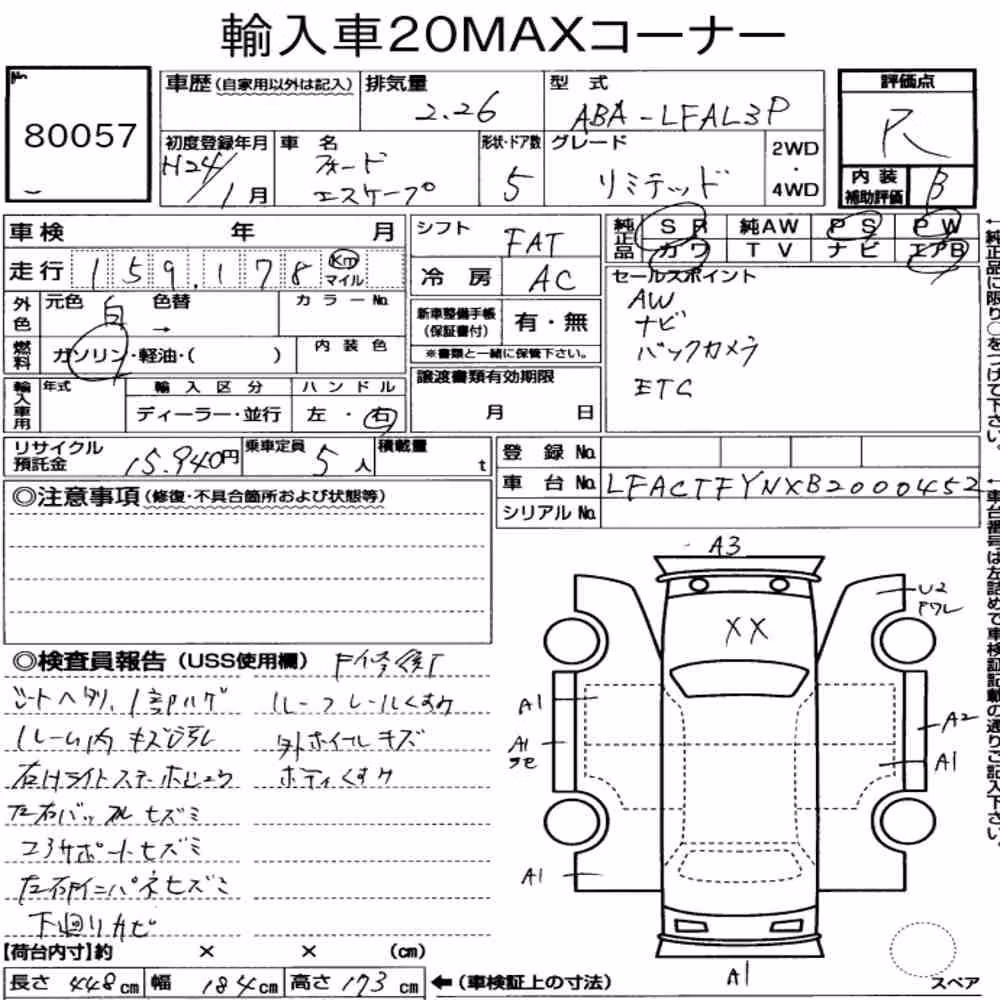 輸入車20MAXコーナー
No
80057
車歴(自家用以外は記入) 排気量 2.26 型式 ABA-LFAL3P
評価点 R
初度登録年月 H24/1月 車名 フォード エスケープ 形状・ドア数 5 グレード リミテッド 2WD・4WD
内装補助評価 B
車検 年 月
シフト FAT
純正品 SR 純AW PS PW
カワ TV ナビ エアB
走行 159,178 Km マイル
冷房 AC
セールスポイント
AW
ナビ
バックカメラ
ETC
外色 元色 白 色替 → カラーNo.
新車整備手帳(保証書付) 有・無
※書類と一緒に保管下さい。
燃料 ガソリン・軽油・( ) 内装色
輸入車用 年式 輸入区分 ハンドル
ディーラー・並行 左・右
譲渡書類有効期限
月 日
リサイクル預託金 15,940円 乗車定員 5人 積載量 t
登録No.
車台No. LFACTFYNXB2000452
シリアルNo.
←純正品に限り○をつけて下さい。
←車台番号は左詰めで車検証記載の通りご記入下さい。
◎注意事項(修復・不具合箇所および状態等)
◎検査員報告(USS使用欄)
シートヘタリ、
ルーフレールくすみ
外ホイールキズ
ボディくすみ
左右バックパネルヒズミ
コアサポートヒズミ
下廻りカビ
A3
U2
XX
A1
A1
A2
A1
A1
A1
スペア
【荷台内寸】約 × × (cm)
長さ 448cm 幅 184cm 高さ 173cm ←(車検証上の寸法)